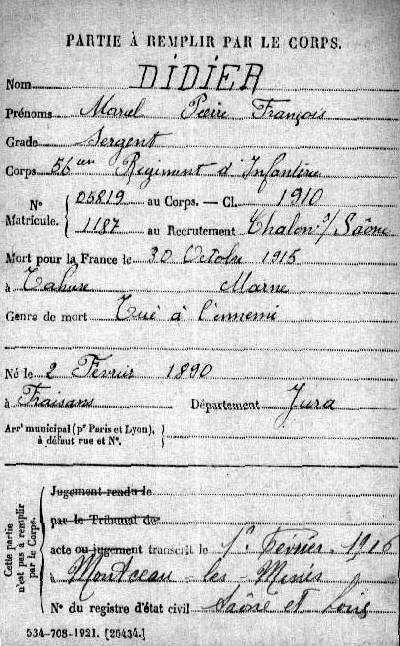 PARTIE À REMPLIR PAR LE CORPS.
Nom DIDIER
Prénoms Marcel Pierre François
Grade Sergent
Corps 56ème Régiment d'Infanterie
N° Matricule. { 05819 au Corps. — Cl. 1910
1187 au Recrutement Chalon s/ Saône
Mort pour la France le 30 Octobre 1915
à Tahure Marne
Genre de mort Tué à l'ennemi
Né le 2 Février 1890
à Fraisans Département Jura
Arrt municipal (pr Paris et Lyon), à défaut rue et N°. {
Cette partie n'est pas à remplir par le Corps.
Jugement rendu le
par le Tribunal de
acte ou jugement transcrit le 1er Février 1916
à Montceau-les-Mines
N° du registre d'état civil Saône et Loire
534-708-1921. [26434.]